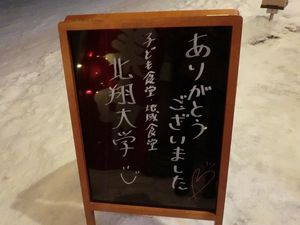 ありがとう
ございました
子ども食堂・地域食堂
北翔大学